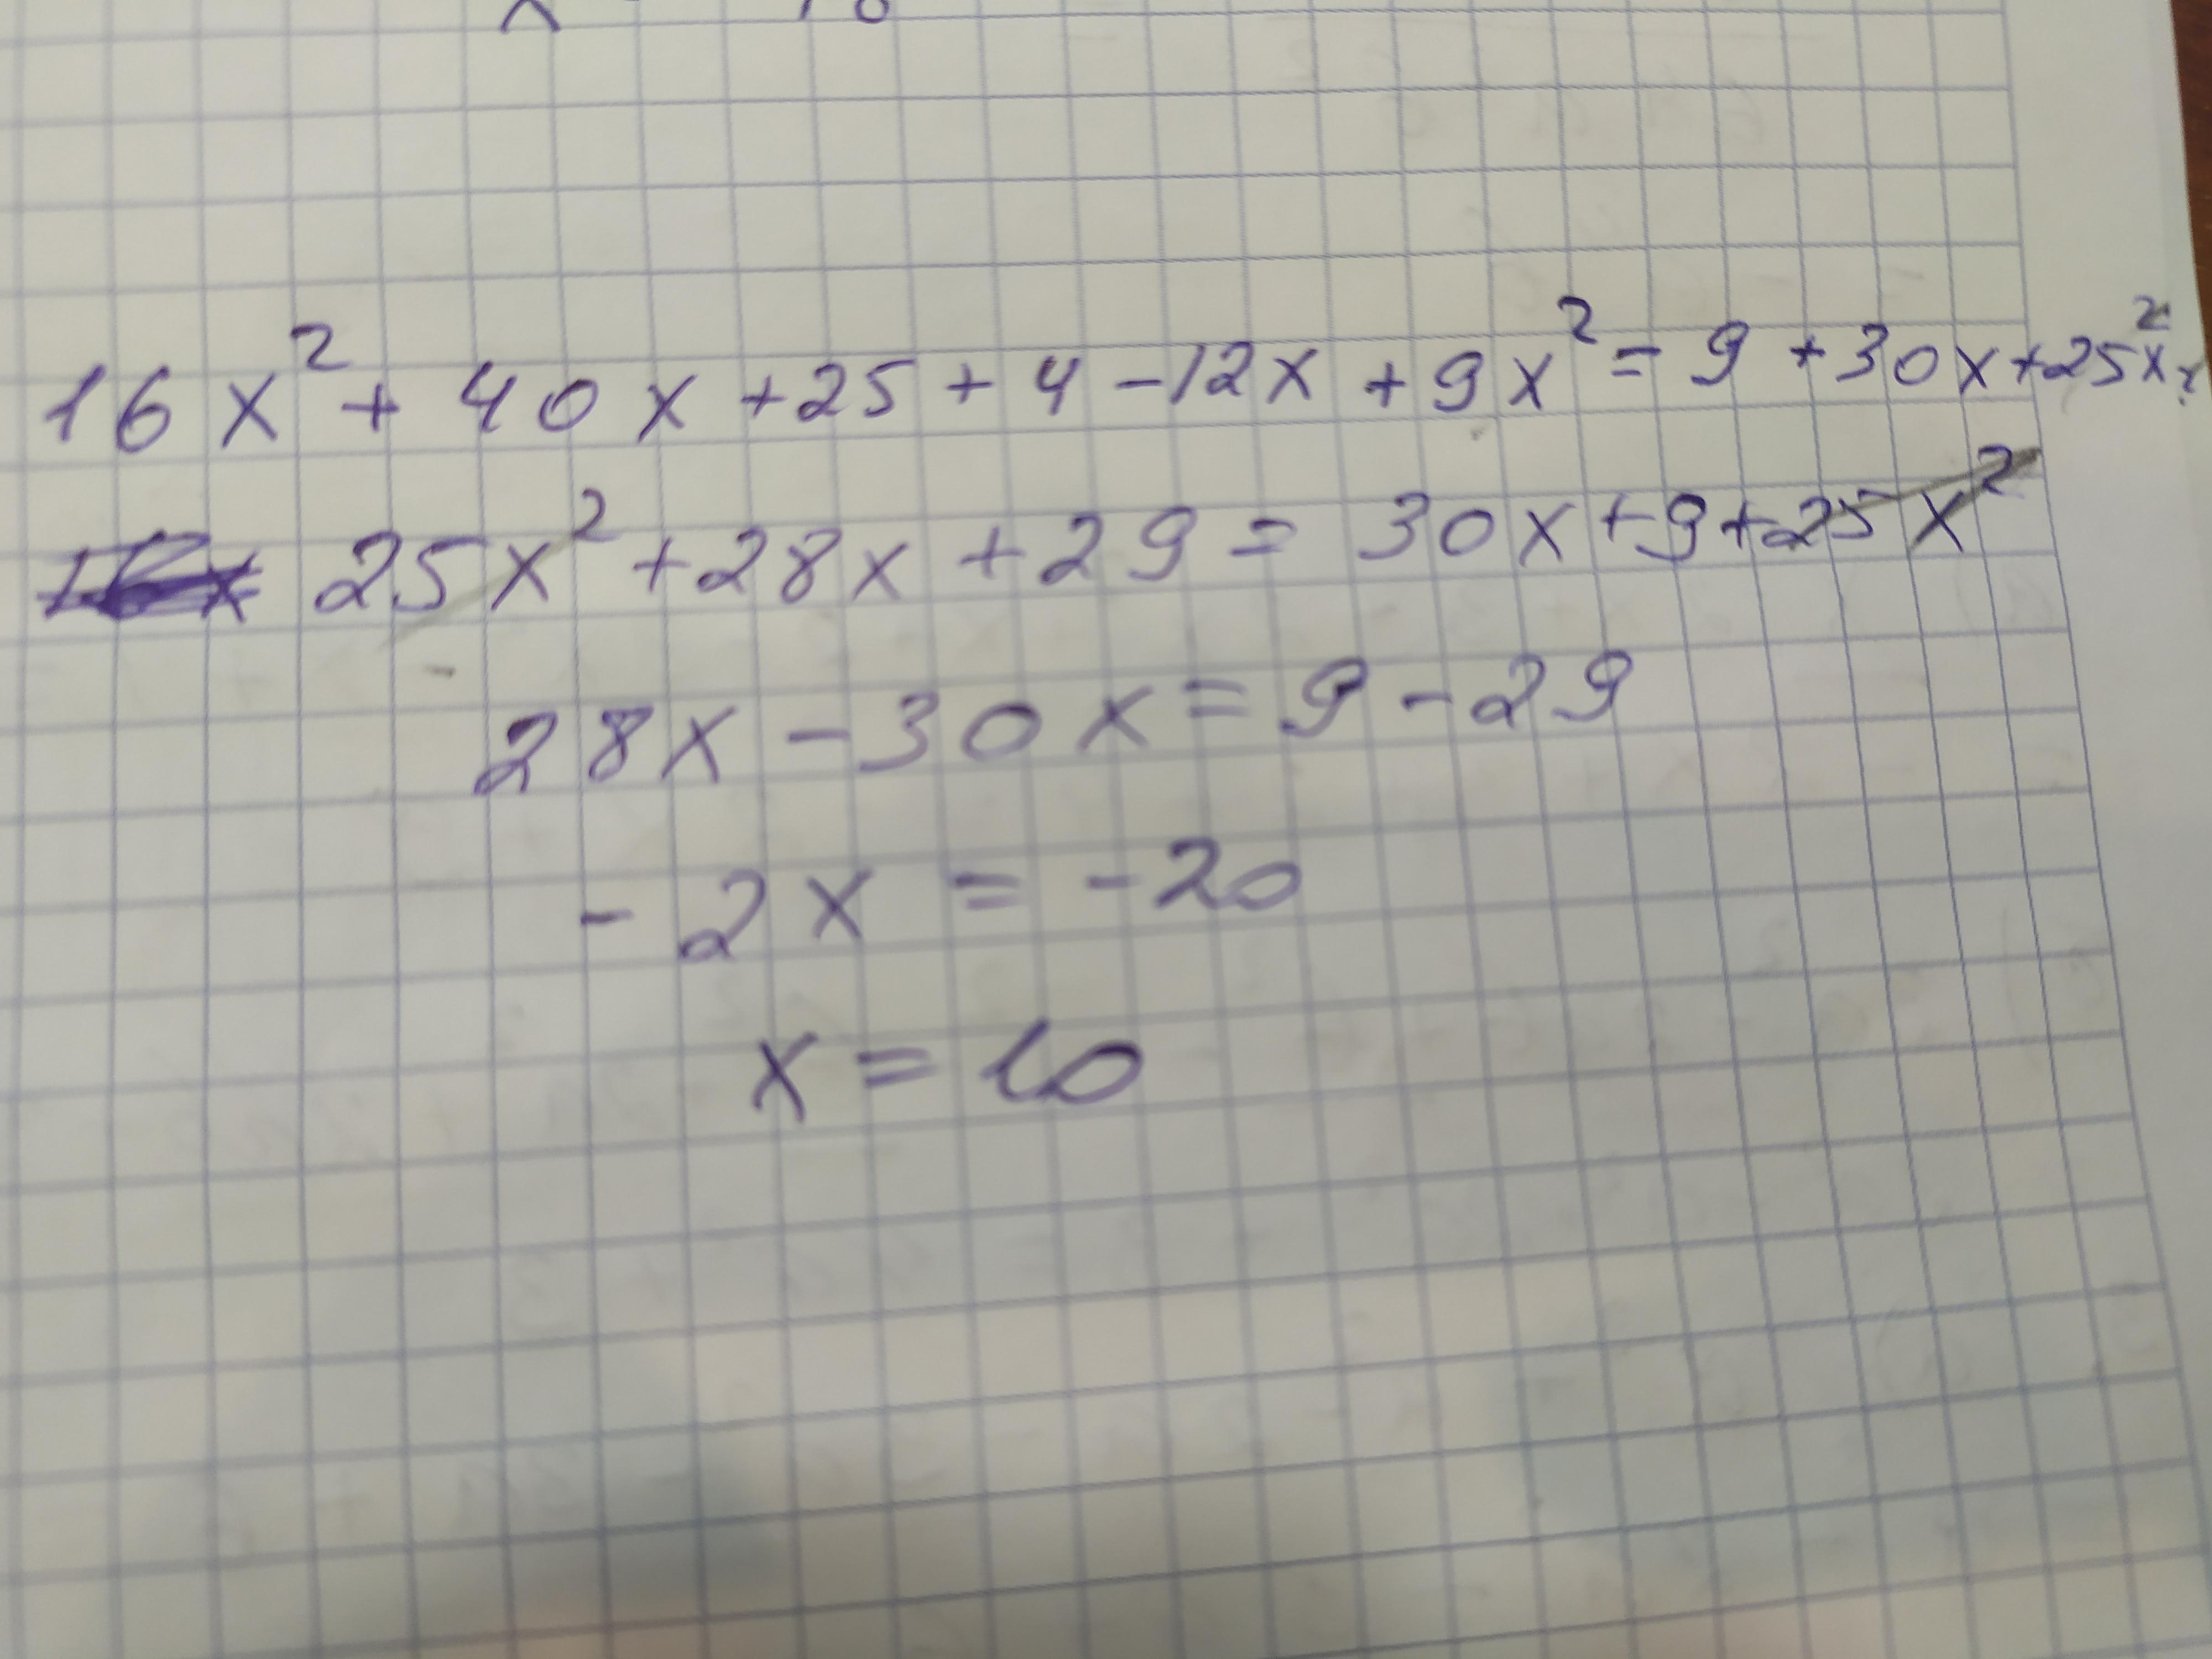 16x² + 40x + 25 + 4 - 12x + 9x² = 9 + 30x + 25x²
25x² + 28x + 29 = 30x + 9 + 25x²
28x - 30x = 9 - 29
- 2x = -20
x = 10